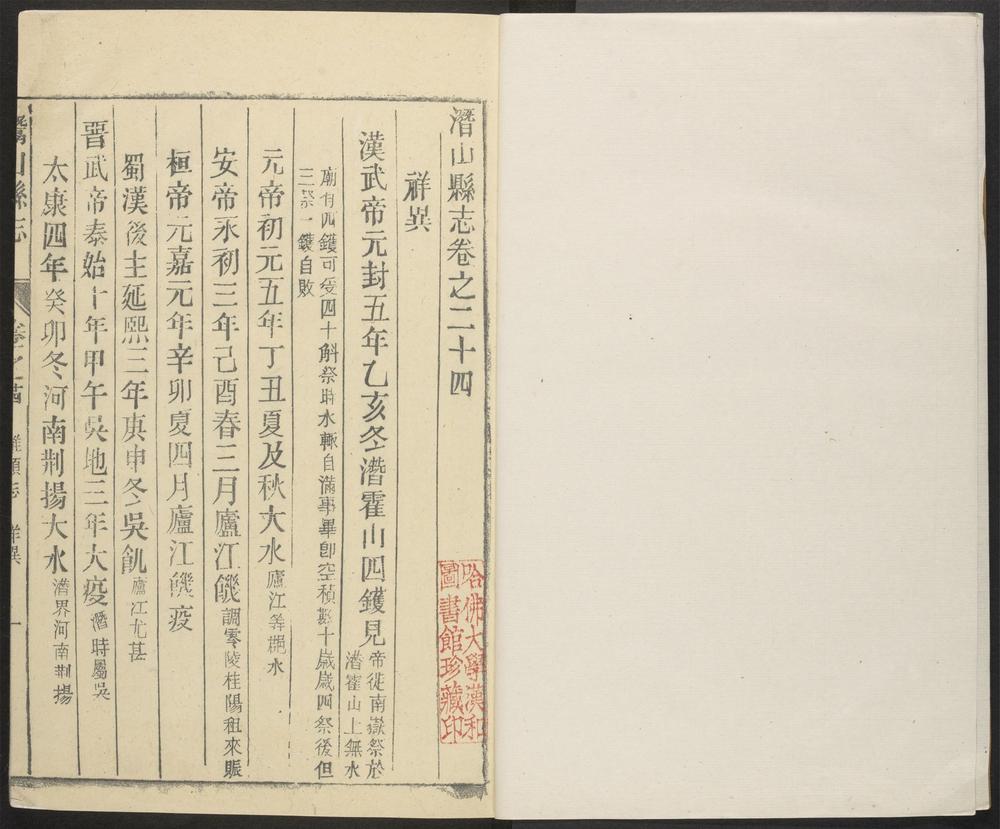 潛山縣志卷之二十四
祥異
漢武帝元封五年乙亥冬潛霍山四鑊見帝徙南嶽祭於
潛霍山上無水
廟有四鑊可受四十斛祭時水輒自滿事畢卽空積數十歲歲四祭後但
三祭一鑊自敗
元帝初元五年丁丑夏及秋大水廬江等郡水
安帝永初三年己酉春三月廬江饑調零陵桂陽租來賑
桓帝元嘉元年辛卯夏四月廬江饑疫
蜀漢後主延熙三年庚申冬吳飢廬江尤甚
晉武帝泰始十年甲午吳地三年大疫潛時屬吳
太康四年癸卯冬河南荆揚大水潛界河南荆揚
山縣志
卷之
祥異
一
哈佛大學漢和
圖書館珍藏印